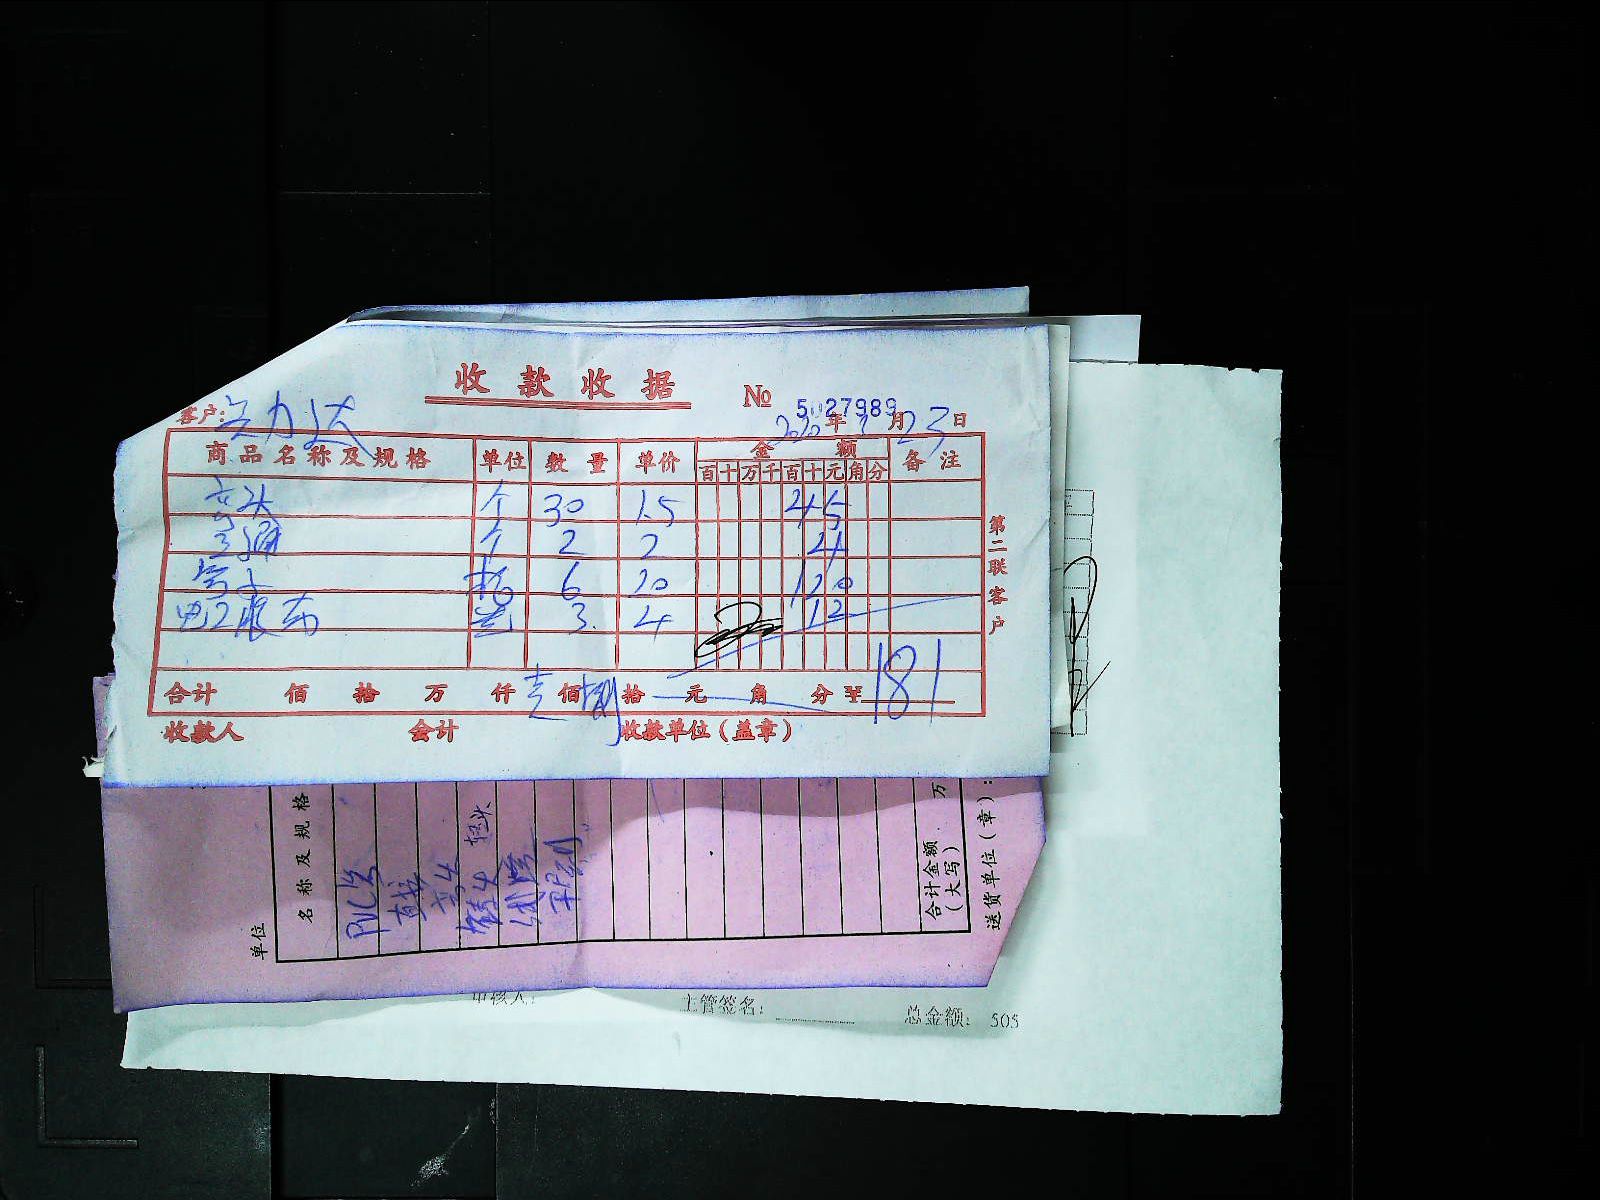 收款收据
№ 5027989
客户: 立力达 2020年3月23日
商品名称及规格 单位 数量 单价 金额 备注
百十万千百十元角分
个 30 1.5 45
个 2 2 4
6 20 120
电工胶布 3 4 12
合计 佰 拾 万 仟 壹佰捌拾 元 角 分 ¥ 181
收款人 会计 收款单位（盖章）
第二联 客户
单位
名称及规格
PVC
直接
合计金额（大写） 万
送货单位（章）：
审核人: 主管签名: 总金额: 505